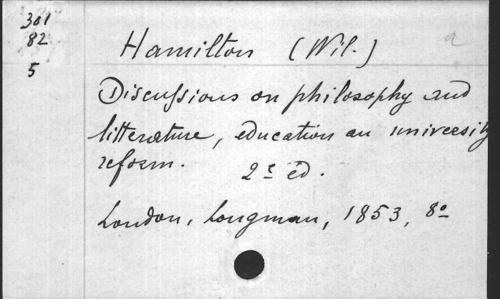 301
82
5
Hamilton (Wil.)
Discussions on philosophy and
litterature, education an university
reform. 2e éd.
London, Longman, 1853, 8o